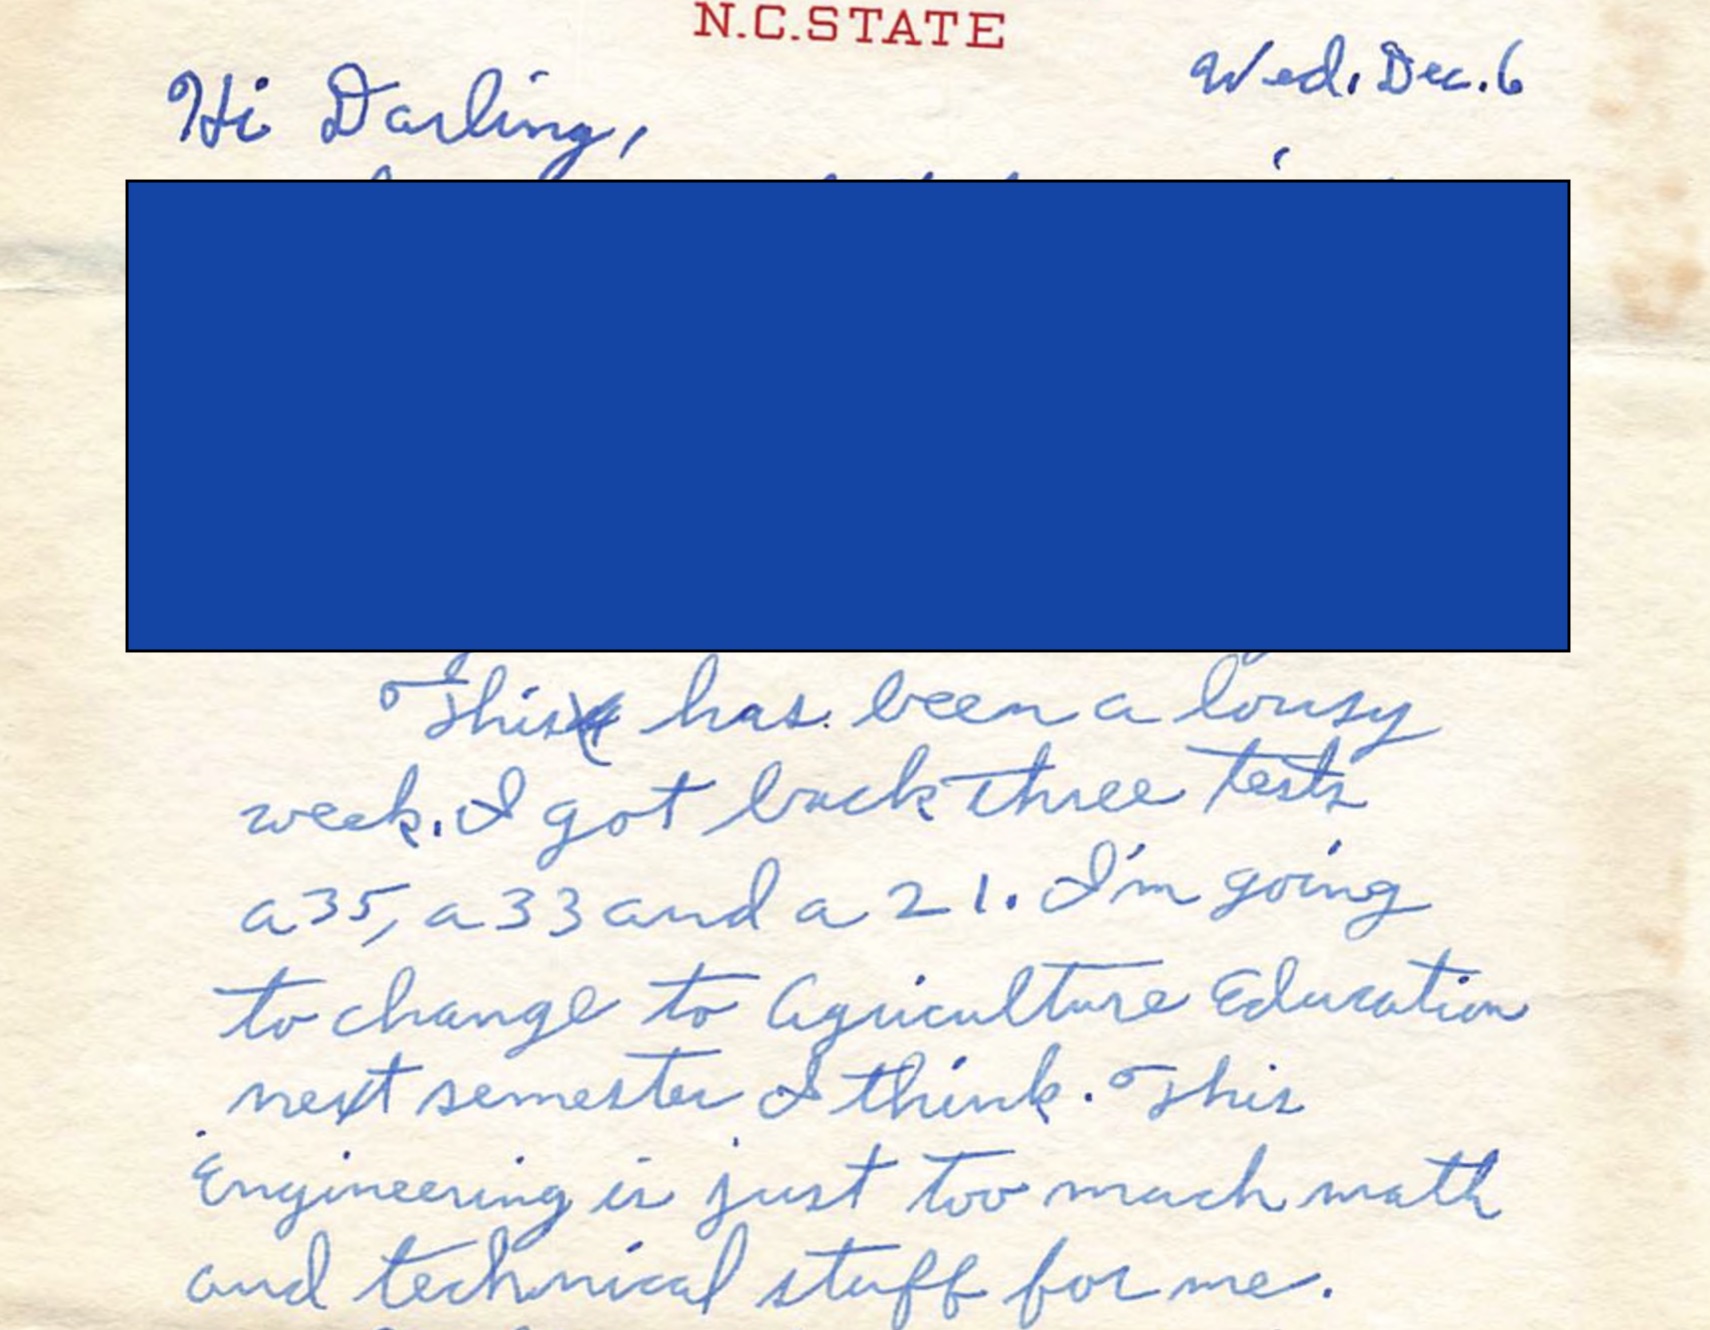 N.C.STATE
Wed. Dec. 6
Hi Darling,
This has been a lousy
week. I got back three tests
a 35, a 33 and a 21. I'm going
to change to Agriculture Education
next semester I think. This
Engineering is just too much math
and technical stuff for me.